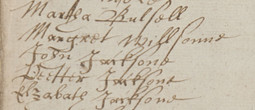 Martha Russell
Margret Willsonne
John Jacksone
Peetter Jacksone
Elzabath Jacksone